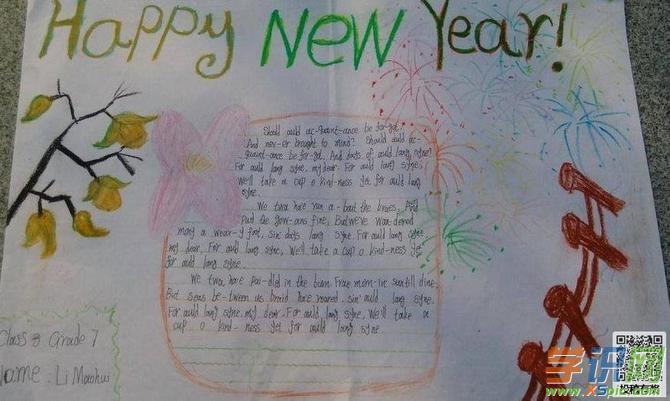 Happy New Year!
Should auld ac-quaint-ance be for-got
And nev-er brought to mind? Should auld ac-
quaint-ance be for-got. And days of auld lang syne?
For auld lang syne. my dear. For auld lang syne.
We'll take a cup o kind-ness yet for auld lang
syne.
We two have run a-bout the braes, And
pu'd the gow-ans fine, But we've wan-dered
mony a wear-y foot, sin' days lang syne. For auld lang syne
my dear. For auld lang syne, We'll take a cup o kind-ness yet
for auld lang syne.
We two have pai-dled in the burn. From morn-in sun till dine.
But seas be-tween us braid have roared. sin' auld lang syne.
For auld lang syne. my dear. For auld lang syne. We'll take a
cup o kind-ness yet for auld lang syne
Class 3 Grade 7
Name. Li Maohui
学识网
www.XSpic.com
投稿有奖